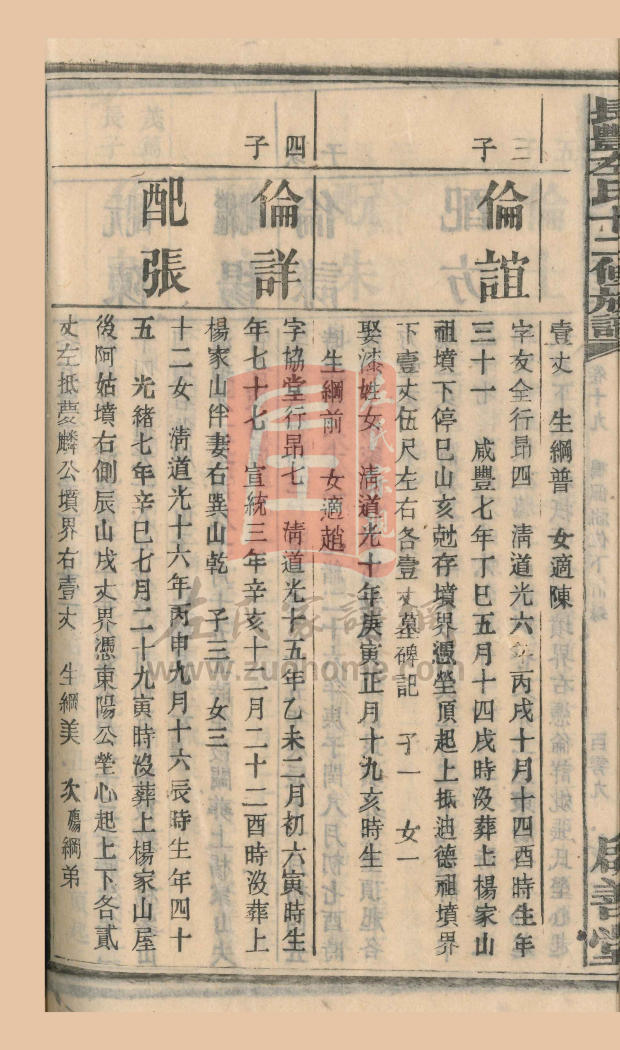 長豐左氏十二修族譜
卷十九
百零九
壹丈 生綱普 女適陳
三子
倫誼
字友全行昂四 清道光六年丙戌十月十四酉時生年
三十一 咸豐七年丁巳五月十四戌時沒葬上楊家山
祖墳下停巳山亥尅存墳界憑塋頂起上抵迪德祖墳界
下壹丈伍尺左右各壹丈墓碑記 子一 女一
娶漆姓女 清道光十年庚寅正月十九亥時生
生綱前 女適趙
四子
倫詳
字協堂行昂七 清道光十五年乙未二月初六寅時生
年七十七 宣統三年辛亥十二月二十二酉時沒葬上
楊家山伴妻右巽山乾 子三 女三
配張
十二女 清道光十六年丙申九月十六辰時生年四十
五 光緒七年辛巳七月二十九寅時沒葬上楊家山屋
後阿姑墳右側辰山戌丈界憑東陽公塋心起上下各貳
丈左抵慶麟公墳界右壹丈 生綱美 次殤綱弟
左氏家譜網
www.zuohome.com